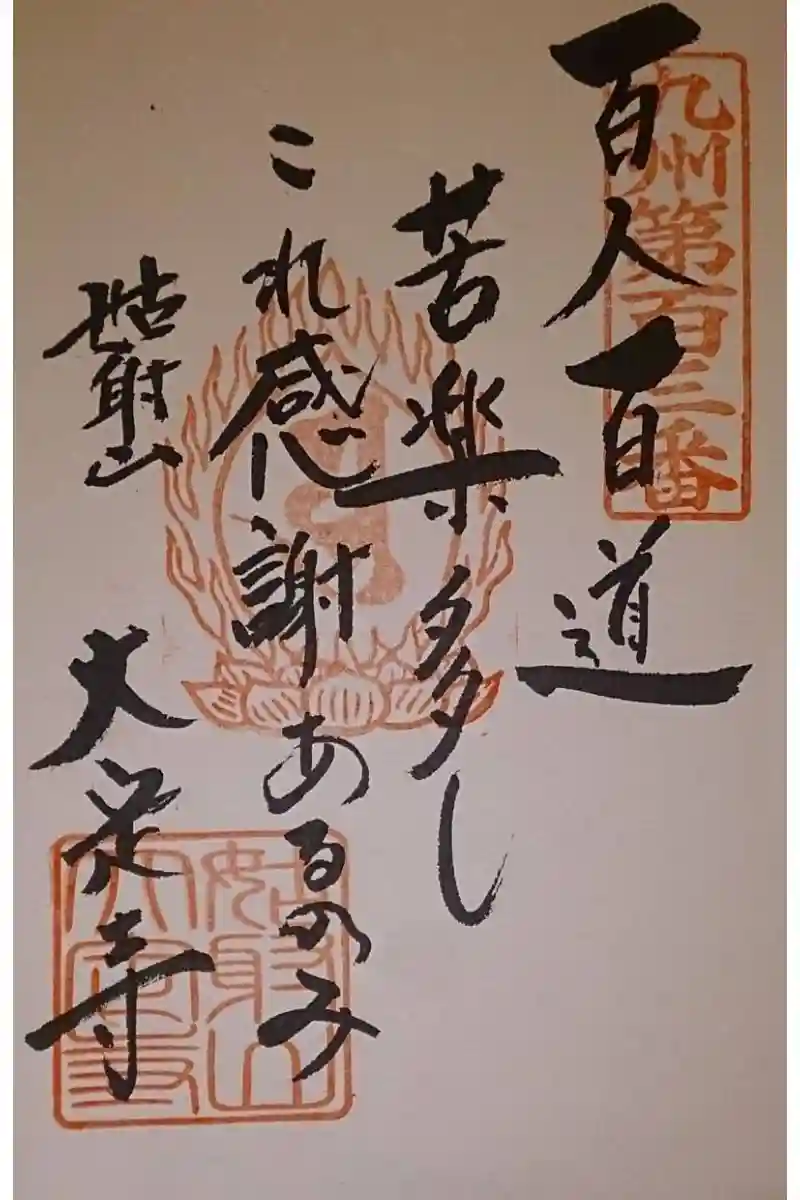 九州第百三番
百人百道
苦楽多し
これ感謝あるのみ
姑射山
大定寺
姑射山
大定寺